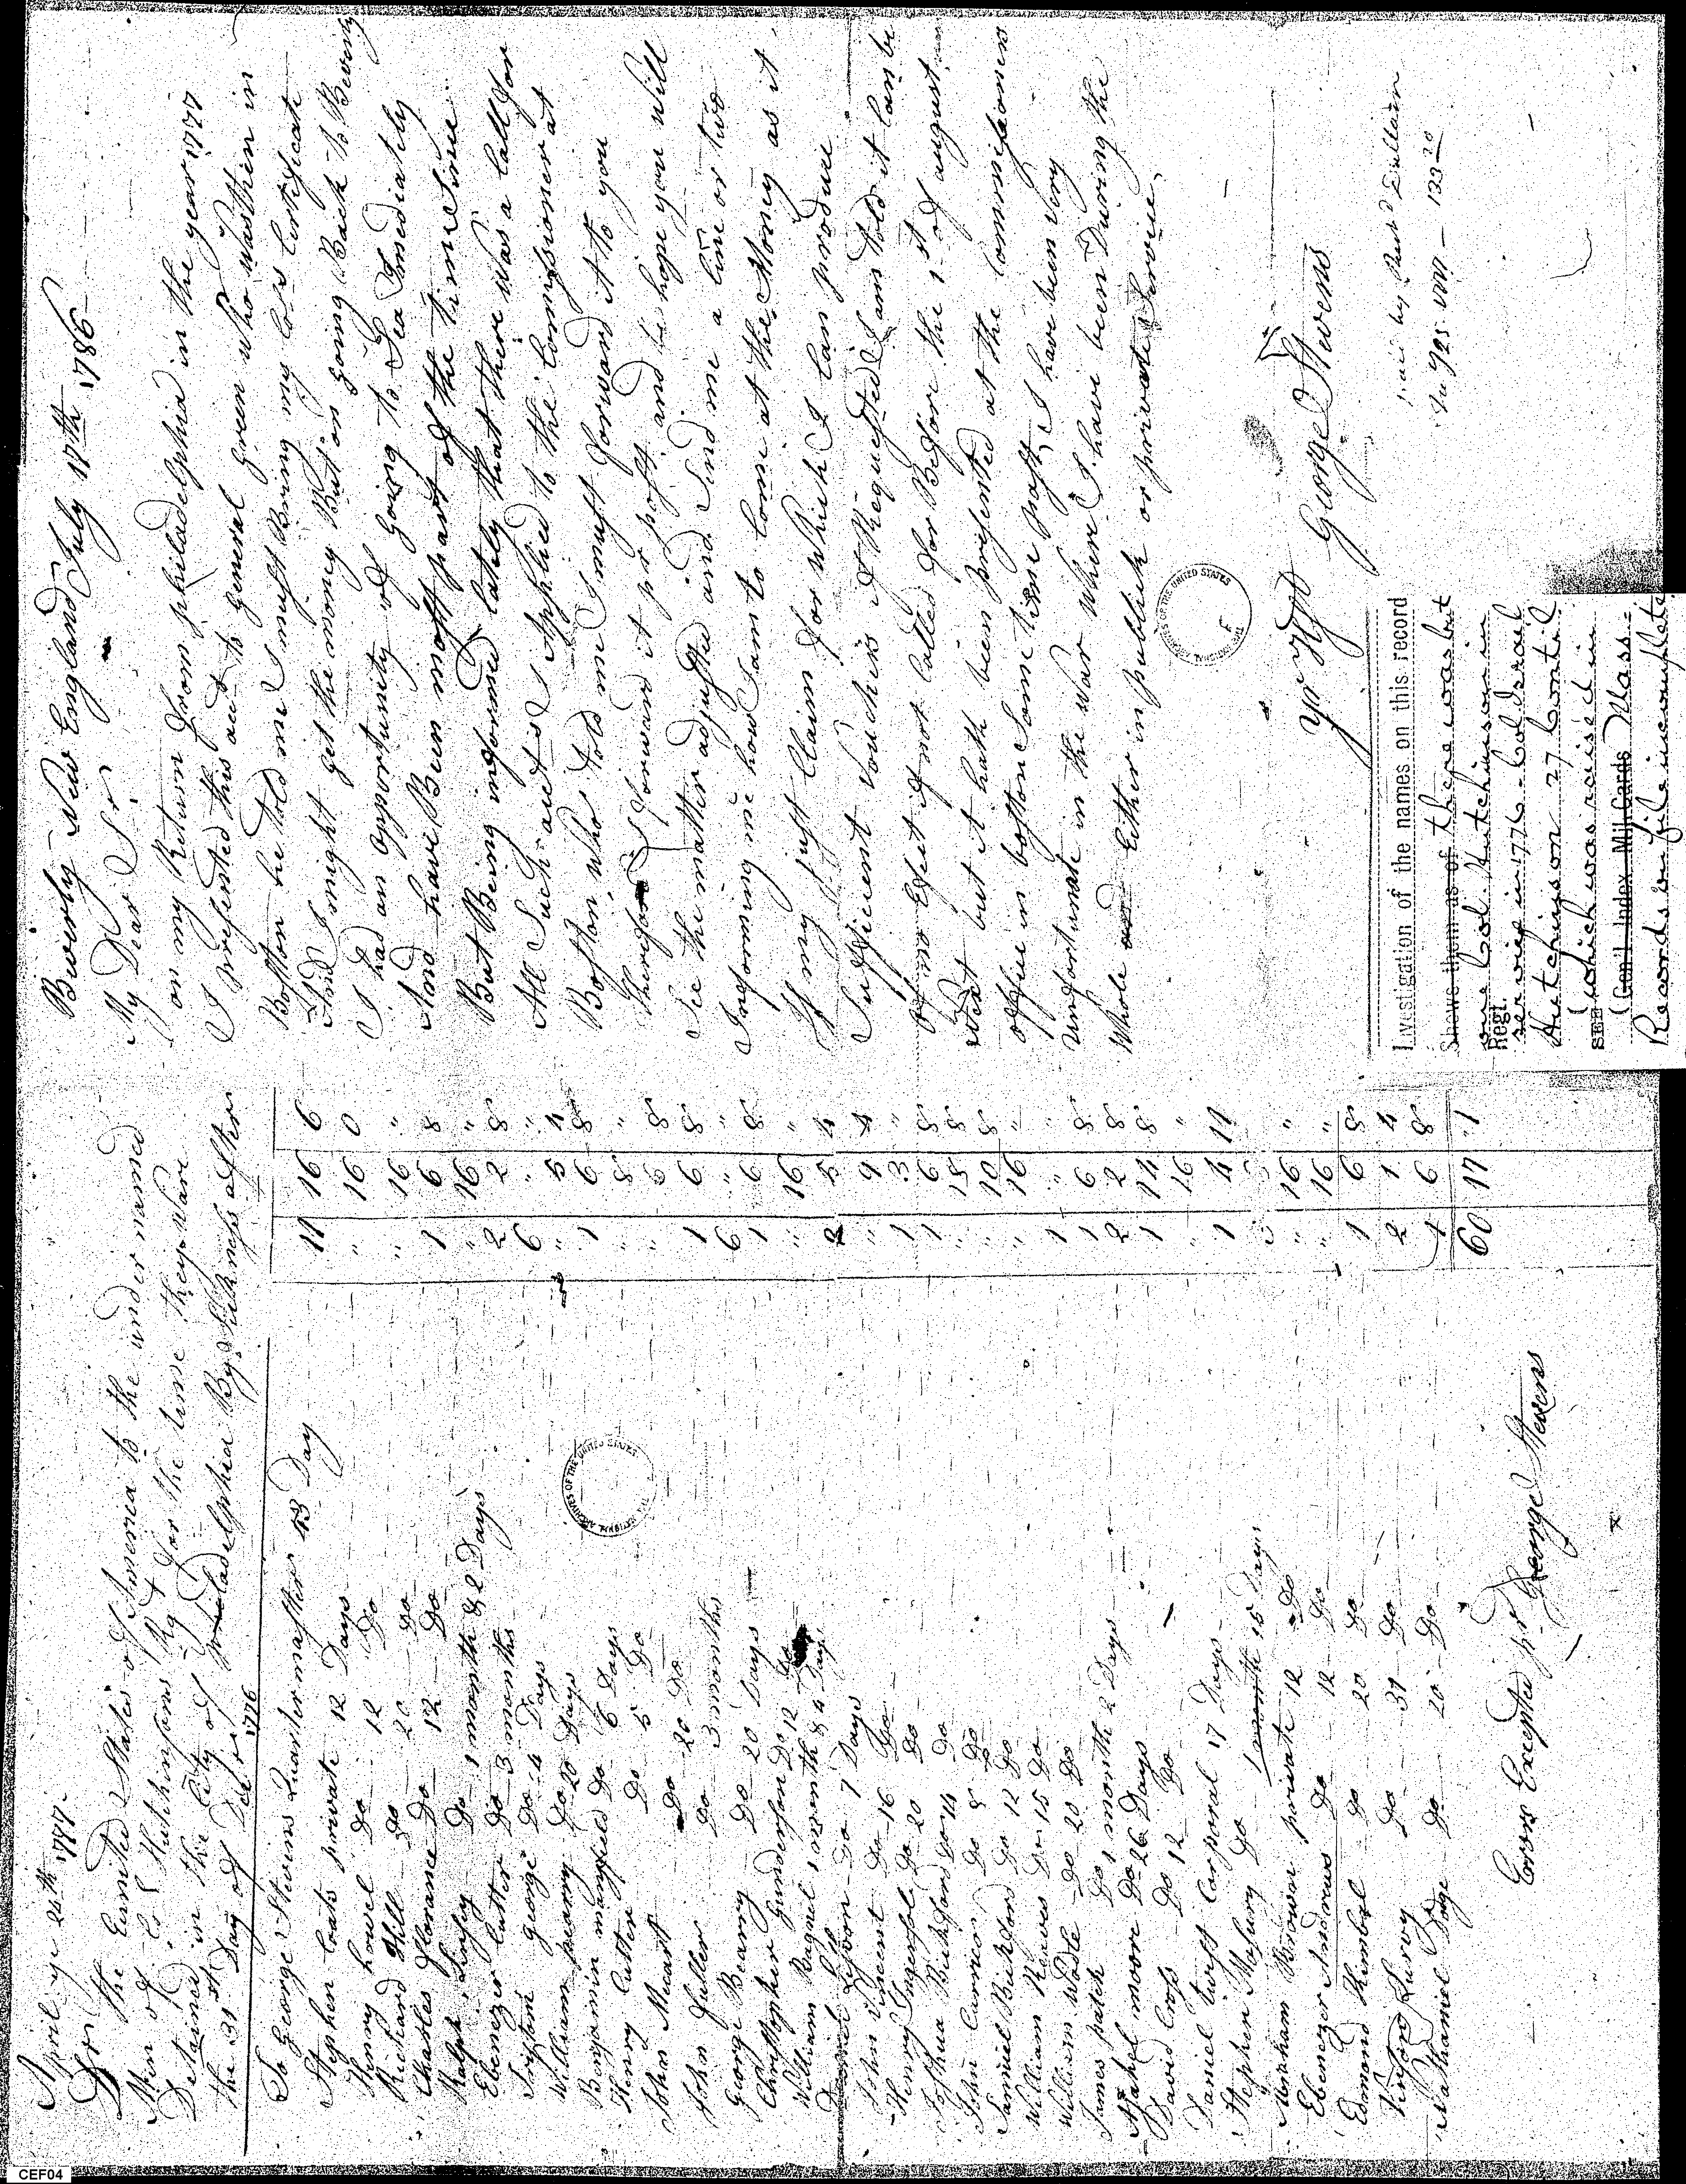 April ye 24th 1787
Dr the United States of America to the under named
Men of Col Hutchinsons Rgt for the time they Ware
Detained in the City of philadelphia By Sickness after
the 31st Day of Decr 1776
To George Stevens Quartermaster 43 Day 11 16 6
Stephen Coats private 12 Days " 16 0
Henry howel Do 12 Do " 16 "
Richard Hill Do 20 Do 1 6 8
Charles florance Do 12 Do " 16 "
Ralph Do 1 month & 2 Days 2 2 8
Ebenezer Cutter Do 3 months 6 " "
Tristram george Do 4 Days " 5 4
William pearry Do 20 Days 1 6 8
Benjamin mansfield Do 6 Days " 8 "
Henry Cutter Do 5 Do " 6 8
John Mecart Do 20 Do 1 6 8
John fuller Do 3 months 6 " "
George Bearry Do 20 Days 1 6 8
Christopher Do 12 Do " 16 "
William 1 month & 4 Days 2 5 4
Do 7 Days " 9 4
John Vincent Do 16 Do 1 "
Henry Ingersol Do 20 Do 1 6 8
Joshua Bickford Do 14 Do " 18 8
John Curries Do 8 Do " 10 8
Samuel Bickford Do 12 Do " 16 "
William Reaves Do 15 Do 1 " "
William Wodle Do 20 Do 1 6 8
James patch Do 1 month 2 Days 2 2 8
Asahel moore Do 26 Days 1 14 8
David Crofs Do 12 Do " 16 "
Daniel twist Corporal 17 Days 1 4 11
Stephen Masury Do 1 month 15 Days
Abraham Brown private 12 Do " 16 "
Ebenezer Andrews Do 12 Do " 16 "
Edmond Kimbal Do 20 Do 1 6 8
Do 31 Do 2 1 4
Nathaniel Dodge Do 20 Do 1 6 8
60 17 1
Errors Excepted pr George Stevens
Beverly New England July 17th 1786
My Dear Sr
on my Return from philadelphia in the year 1777
I presented this acct to general green who was then in
Boston he told me I must Bring my Cols Certificate
And I might get the money But on going Back to Beverly
I had an opportunity of going to Sea Imediately
And have Been most part of the time Sinse
But Being informed lately that there was a Call for
All Such accts I Applied to the Comissioner at
Boston, Who told me I must forward it to you
therefore I forward it pr post and hope you will
See the matter adjusted and Send me a line or two
Informing me how I am to Come at the Money as it
Is my just Claim for which I Can produce
Sufficient Vouchers if Requested I am told it Can be
of no Efect if not Called for Before the 1st of august
Next but it hath been presented at the Commissioners
office in boston Some time past, I have been Very
unfortunate in the War Where I have been During the
Whole Either in publick or private Service,
yr
George Stevens
Investigation of the names on this record
Shows them as of there was but
one Col. Hutchinson in
Regt.
service in 1776 - Col. Israel
Hutchinson 27 Contil
(which was raised in
SEE (Con'l Index Mil Cards Mass.
Records on file incomplete
NATIONAL ARCHIVES OF THE UNITED STATES
NATIONAL ARCHIVES OF THE UNITED STATES
CEF04